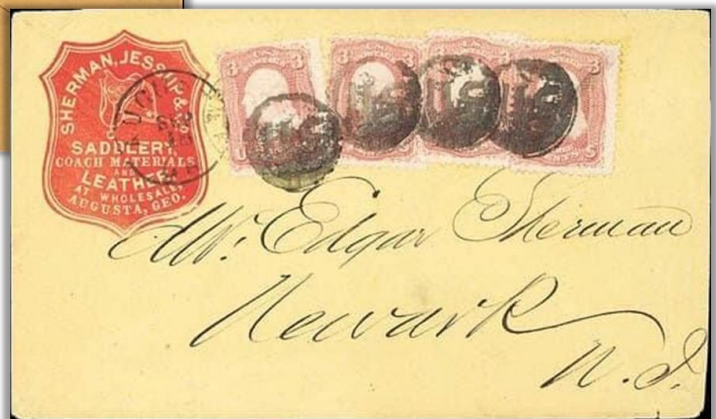 SHERMAN, JESSUP & CO
SADDLERY,
COACH MATERIALS
AND
LEATHER
AT WHOLESALE,
AUGUSTA, GEO.
3 3 3 3 3
U S
Mr. Edgar Sherman
Newark
N. J.